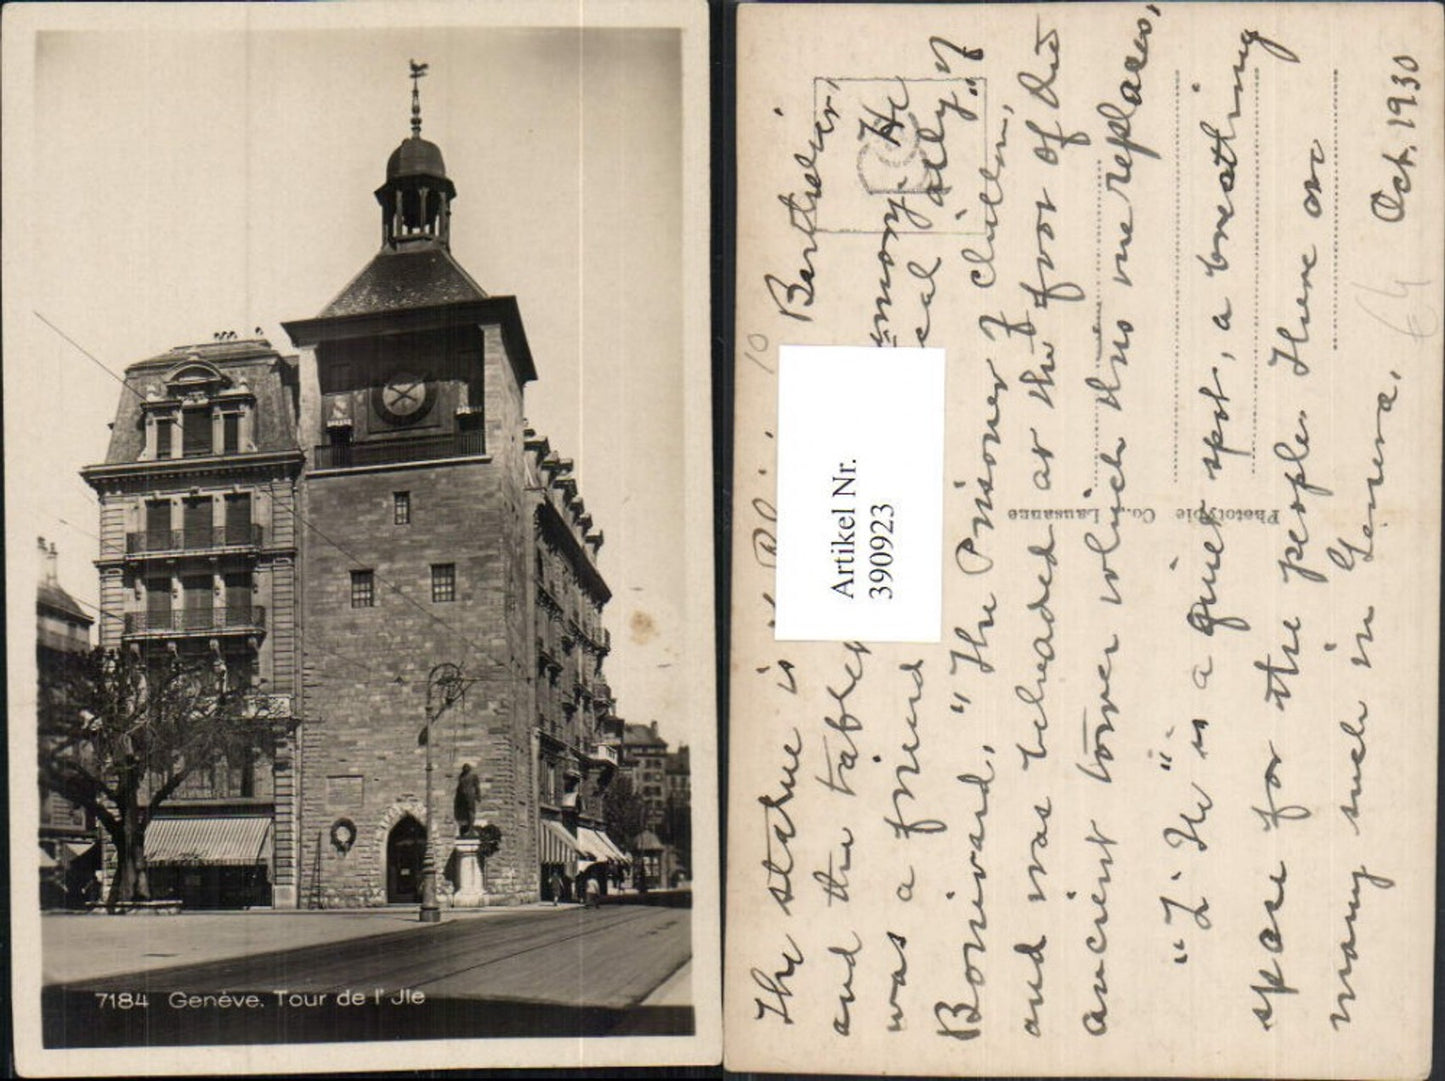 7184 Genève. Tour de l'Jle
The statue is Berthelier,
and the tablet emory. He
was a friend cal ally" of
Bonivard, "The Prisoner of Chillon,"
and was beheaded at the foot of the
ancient tower which this one replaces,
"L'Ile" is a quiet spot, a breathing
space for the people. There are
many such in Geneva.
Oct. 1930
10
64
Artikel Nr.
390923
Phototypie Co., Lausanne